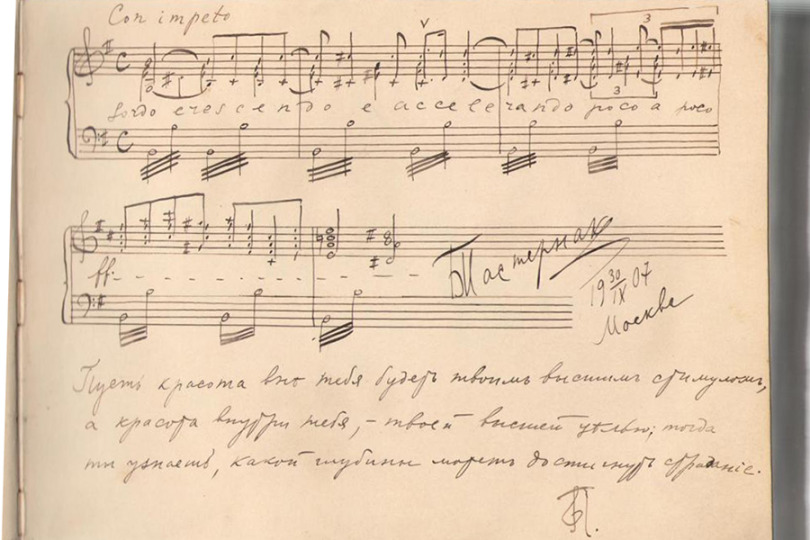 Con impeto
V
3
C
sordo crescendo e accelerando poco a poco
3
C
ff
Б Пастернак
19 30/IX 07
Москва
Пусть красота внѣ тебя будетъ твоимъ высшимъ стимуломъ,
а красота внутри тебя, – твоей высшей цѣлью; тогда
ты узнаешь, какой глубины можетъ достигнуть страданіе.
БП.